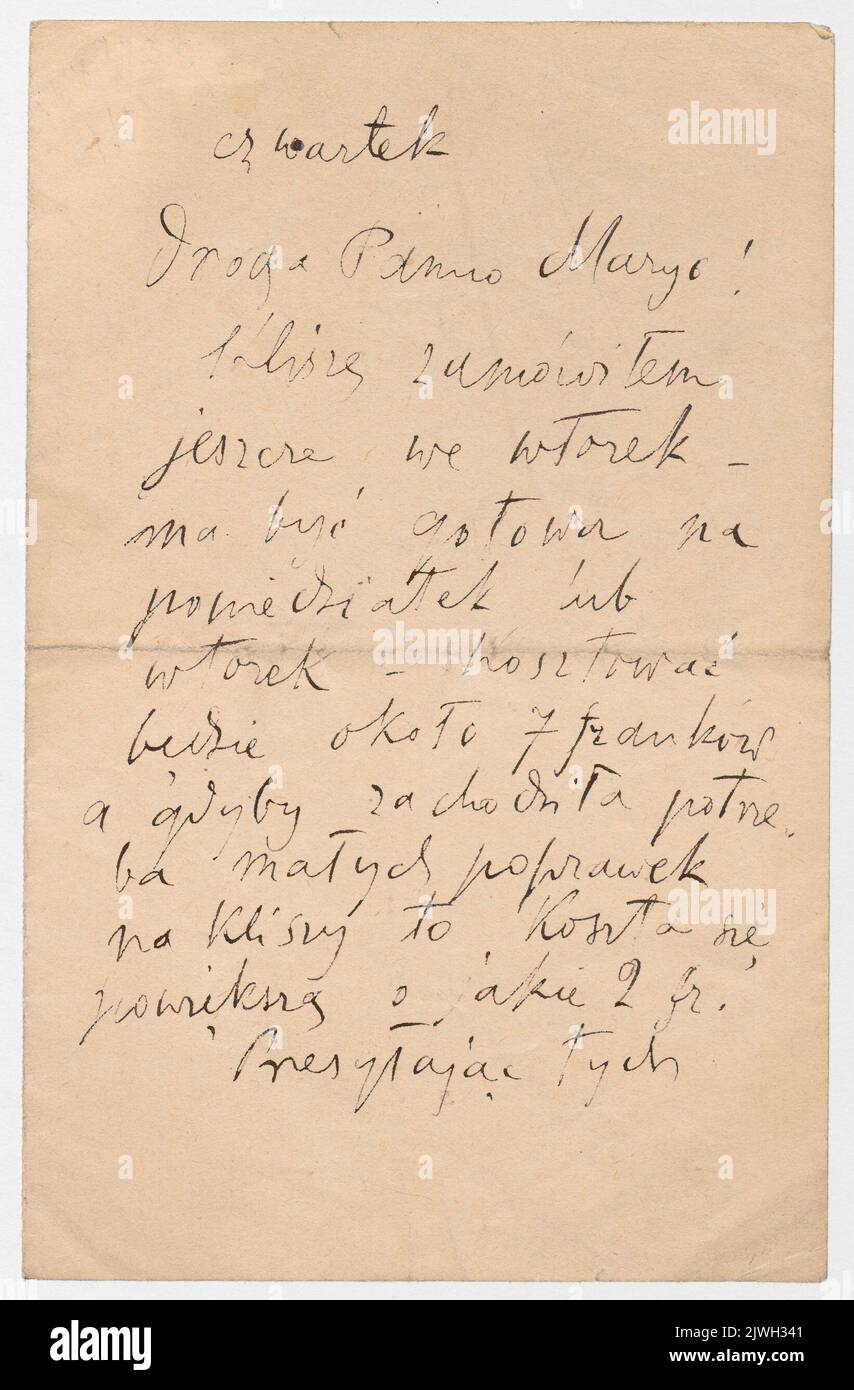 czwartek
Droga Panno Maryo!
Kliszę zamówiłem
jeszcze we wtorek –
ma być gotowa na
poniedziałek lub
wtorek – kosztować
będzie około 7 franków
a gdyby zachodziła potrze-
ba małych poprawek
na kliszy to koszta się
powiększą o jakie 2 fr.
Przesyłając tych
alamy
Image ID: 2JWH341
www.alamy.com